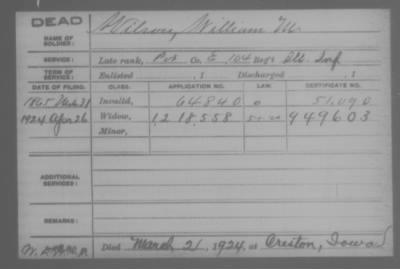 DEAD
NAME OF SOLDIER: Wilson, William M.
SERVICE: Late rank, Pvt Co. E, 104 Reg't Ills. Inf.
TERM OF SERVICE: Enlisted , 1 Discharged , 1
DATE OF FILING. CLASS. APPLICATION NO. LAW. CERTIFICATE NO.
1865 Mch 31 Invalid, 64840 51,090
1924 Apr 26 Widow, 1218,558 949603
Minor,
ADDITIONAL SERVICES:
REMARKS:
Died March 21, 1924, at Creston, Iowa